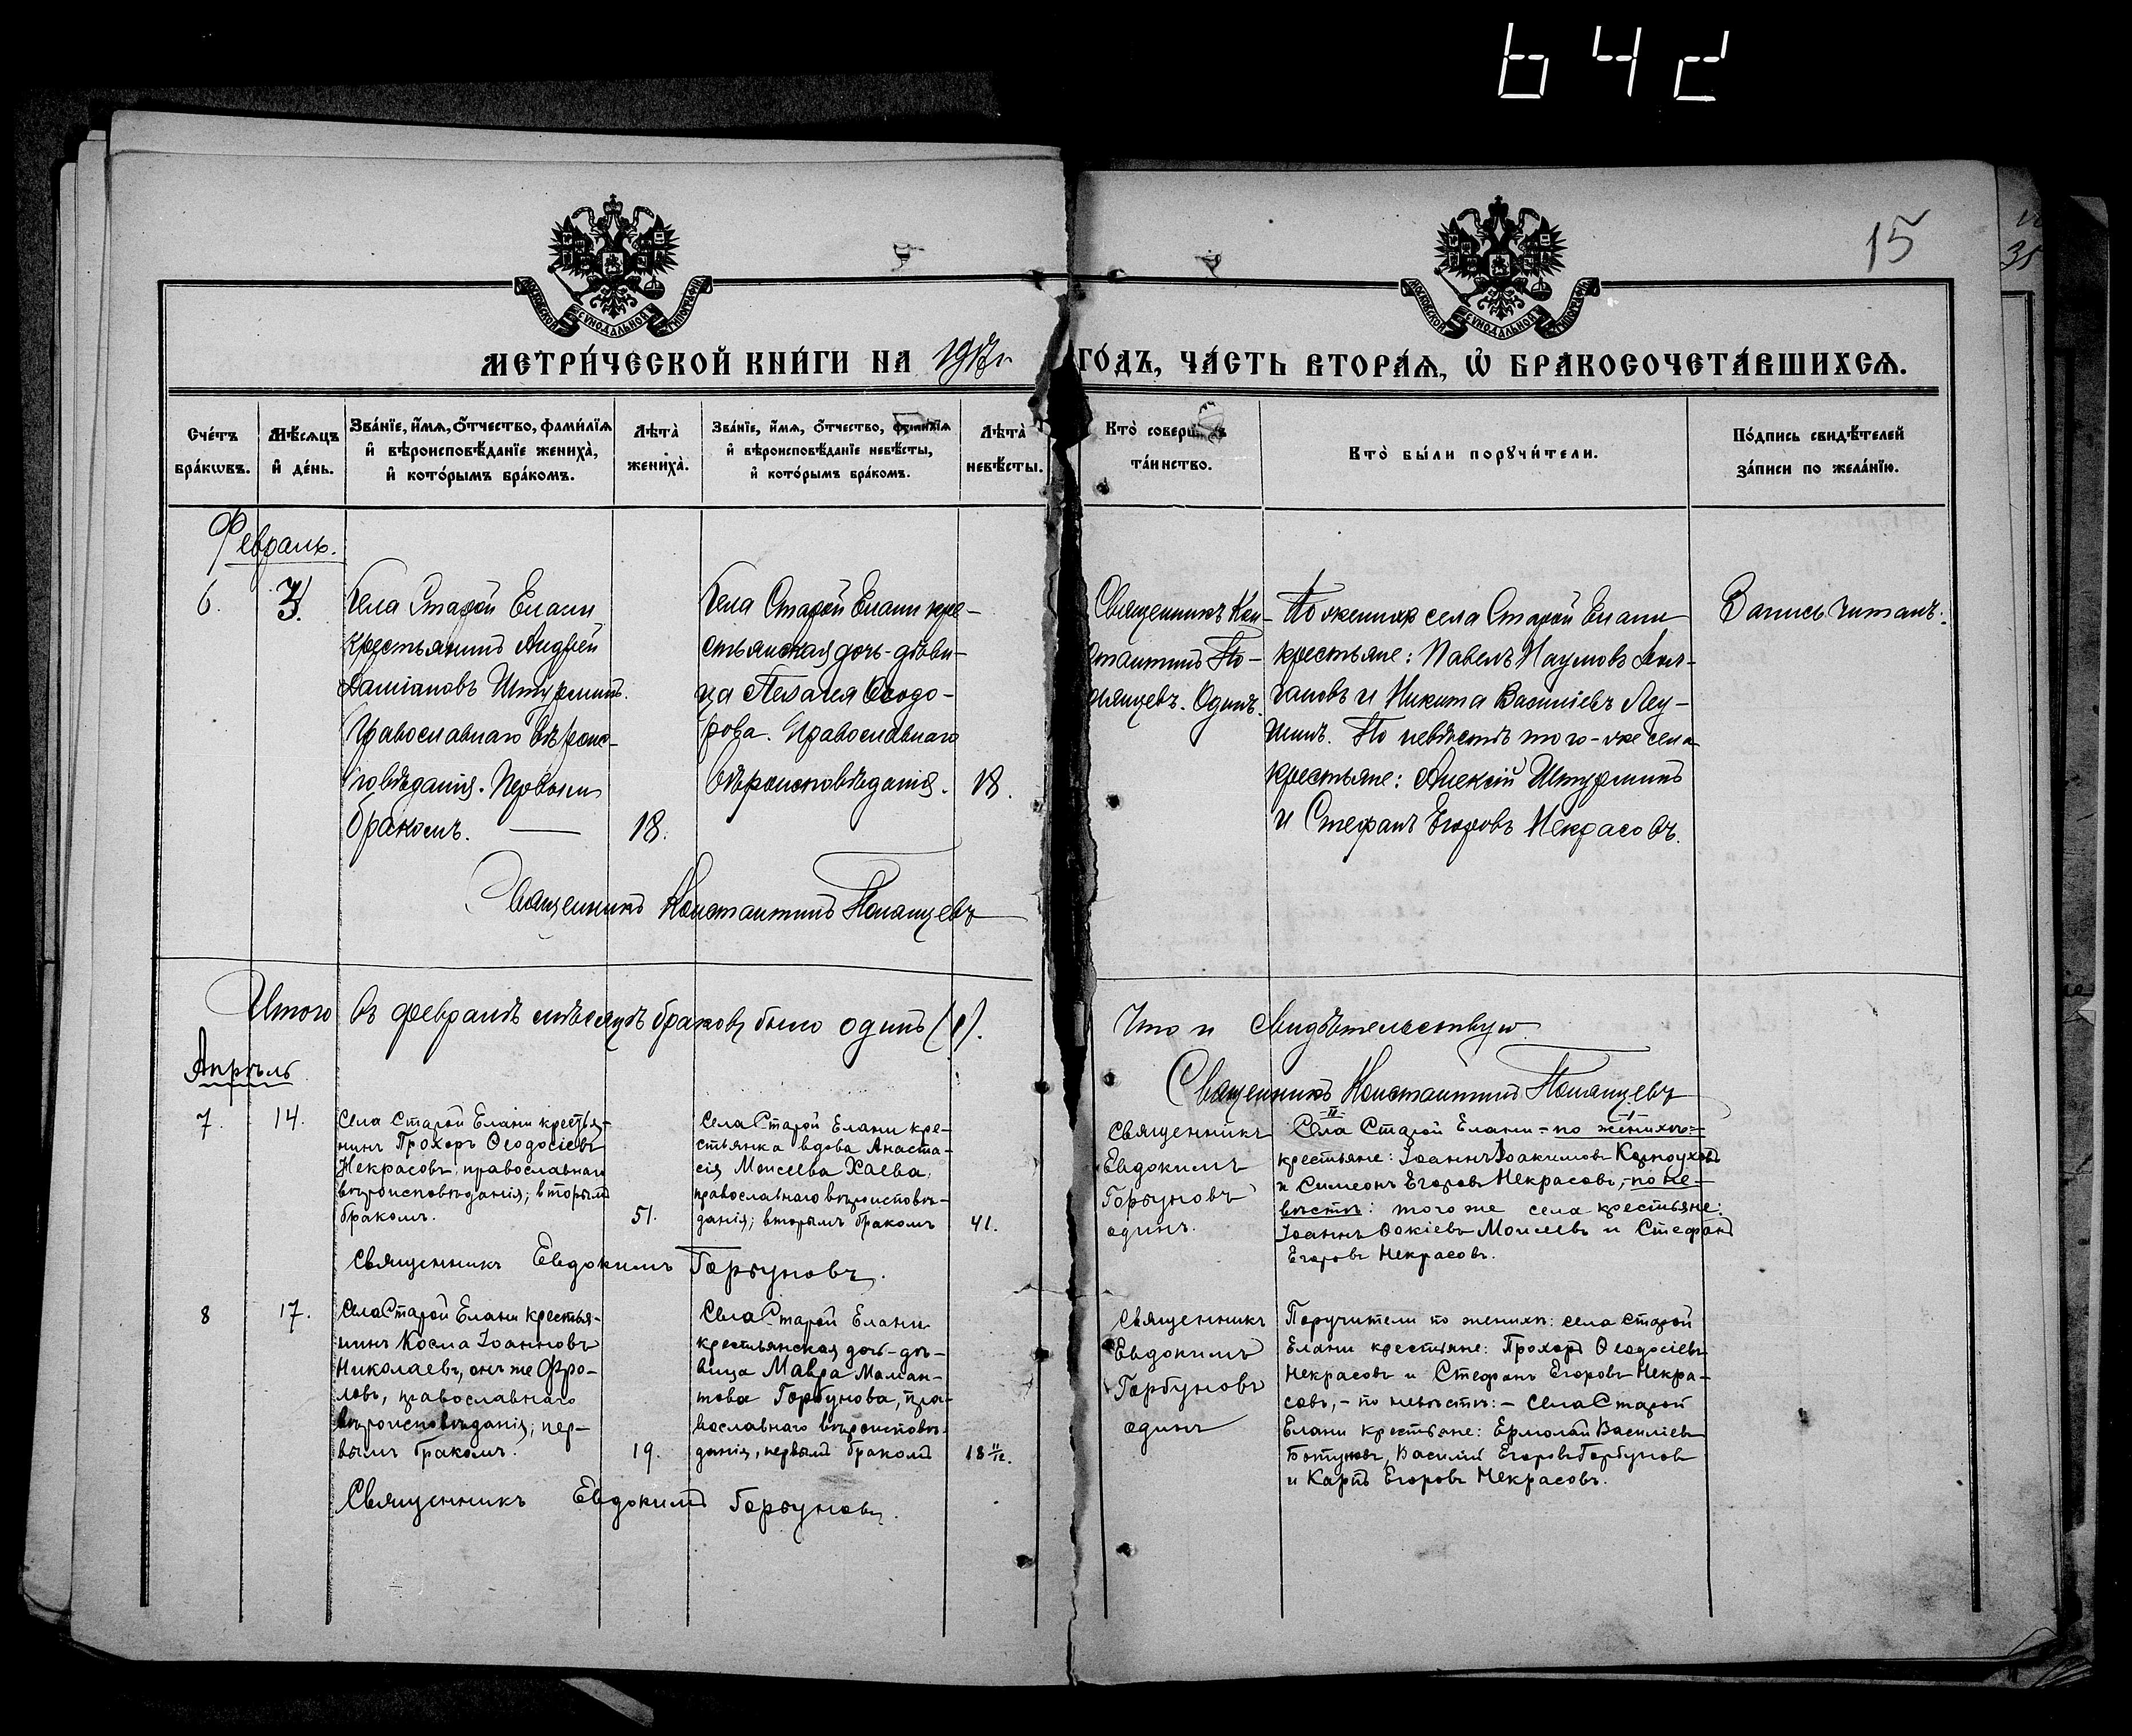 642
15
МОСКОВСКОЙ СУНОДАЛЬНОЙ ТИПОГРАФІИ
МОСКОВСКОЙ СУНОДАЛЬНОЙ ТИПОГРАФІИ
МЕТРИ́ЧЕСКОЙ КНИ́ГИ НА 1917 г. ГО́ДЪ, ЧА́СТЬ ВТОРА́Я, Ѡ҆ БРАКОСОЧЕТА́ВШИХСЯ.
Сче́тъ бра́кѡвъ.
Мѣ́сяцъ и҆ де́нь.
Зва́нїе, и҆́мя, ѻ҆́тчество, фами́лїя
и҆ вѣроисповѣ́данїе жениха̀,
и҆ кото́рымъ бра́комъ.
Лѣта̀ жениха̀.
Зва́нїе, и҆́мя, ѻ҆́тчество, фами́лїя
и҆ вѣроисповѣ́данїе невѣ́сты,
и҆ кото́рымъ бра́комъ.
Лѣта̀ невѣ́сты.
Кто̀ соверша́лъ та́инство.
Кто̀ бы́ли порꙋчи́тели.
По́дпись свидѣ́телей
за́писи по жела́нїю.
Февраль.
6.
Села Старой Елани
крестьянинъ Андрей
Даміановъ Штурминъ.
Православнаго вѣроис-
повѣданія. Первымъ
бракомъ. —
18.
Села Старой Елани кре-
стьянская дочь-дѣви-
ца Пелагея Ѳеодо-
рова. Православнаго
вѣроисповѣданія.
18.
Священникъ Кон-
стантинъ По-
лянцевъ. Одинъ.
По женихѣ села Старой Елани
крестьяне: Павелъ Наумовъ
и Никита Василіевъ Леу-
шинъ. По невѣстѣ того-же села
крестьяне: Алексій Штурминъ
и Стефанъ Егоровъ Некрасовъ.
Запись читалъ:
Священникъ Константинъ Полянцевъ
Итого въ февралѣ мѣсяцѣ браковъ было одинъ (1).
Что и свидѣтельствую
Священникъ Константинъ Полянцевъ
Апрѣль
7.
14.
Села Старой Елани крестья-
нинъ Прохоръ Ѳеодосіевъ
Некрасовъ, православнаго
вѣроисповѣданія; вторымъ
бракомъ.
51.
Села Старой Елани кре-
стьянка вдова Анаста-
сія Моисеева Хаева,
православнаго вѣроисповѣ-
данія; вторымъ бракомъ
41.
Священникъ
Евдокимъ
Горбуновъ
одинъ.
II I
Села Старой Елани – по женихѣ:–
крестьяне: Іоаннъ Іоакимовъ Карноуховъ
и Симеонъ Егоровъ Некрасовъ, – по не-
вѣстѣ: того же села крестьяне:
Іоаннъ Фокіевъ Моисеевъ и Стефанъ
Егоровъ Некрасовъ.
Священникъ Евдокимъ Горбуновъ.
8
17.
Села Старой Елани крестья-
нинъ Косма Іоанновъ
Николаевъ, онъ же Фро-
ловъ, православнаго
вѣроисповѣданія; пер-
вымъ бракомъ.
19.
Села Старой Елани
крестьянская дочь-дѣ-
вица Мавра Маман-
това Горбунова, пра-
вославнаго вѣроисповѣ-
данія, первымъ бракомъ
18 11/12.
Священникъ
Евдокимъ
Горбуновъ
одинъ
Поручители по женихѣ: села Старой
Елани крестьяне: Прохоръ Ѳеодосіевъ
Некрасовъ и Стефанъ Егоровъ Некра-
совъ, – по невѣстѣ: – Села Старой
Елани крестьяне: Ермолай Василіевъ
Ботуновъ, Василій Егоровъ Горбуновъ
и Карпъ Егоровъ Некрасовъ.
Священникъ Евдокимъ Горбуновъ.